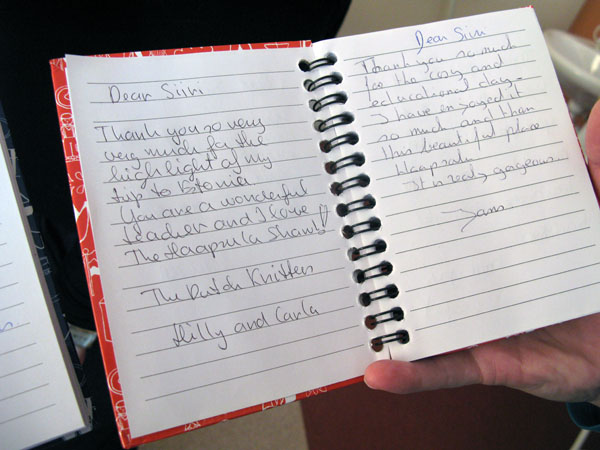 Dear Siiri
Thank you so very
very much for the
highlight of my
trip to Estonia
You are a wonderful
teacher and I love
The Haapsula Shawl!
The Dutch Knitters
Hilly and Carla
Dear Siiri
Thank you so much
for the cosy and
educational day.
I have enjoyed it
so much and than
this beautiful place
Haapsalu
It is really gorgeous